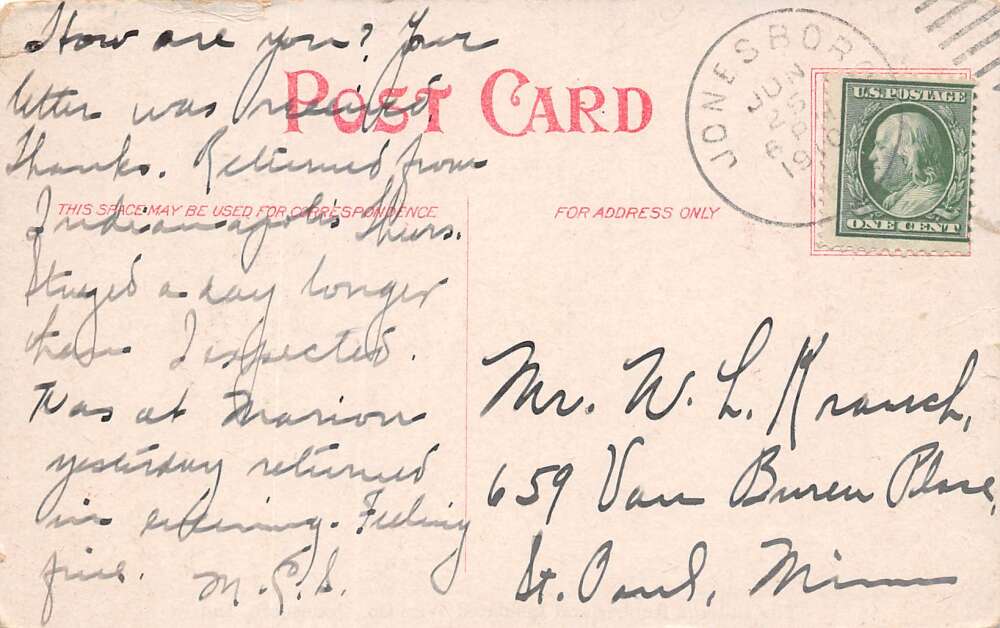 How are you? Your
letter was received.
Thanks. Returned from
Indianapolis Thurs.
Stayed a day longer
than I expected.
Was at Marion
yesterday returned
in evening. Feeling
fine. M.E.S.
POST CARD
THIS SPACE MAY BE USED FOR CORRESPONDENCE
FOR ADDRESS ONLY
JONESBORO
JUN
6 P
1910
U.S. POSTAGE
ONE CENT
Mr. W. L. Krauch,
659 Van Buren Place,
St. Paul, Minn